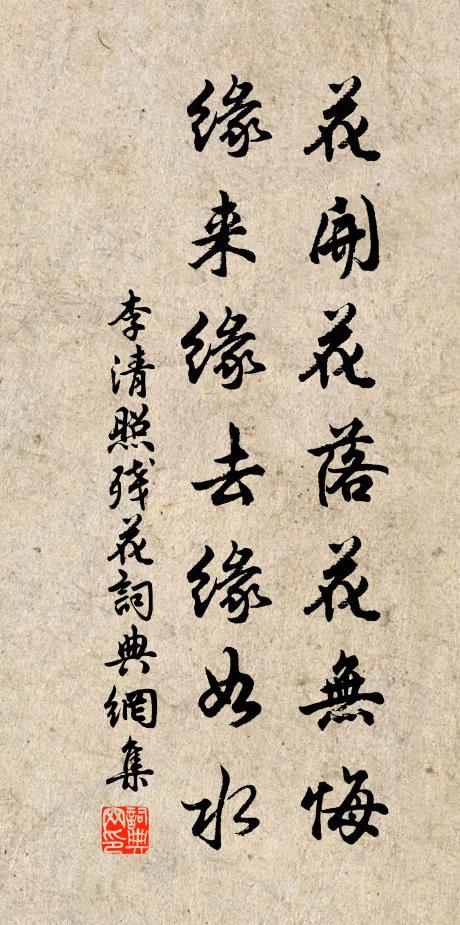 花開花落花無悔
緣来緣去緣如水
李清照残花詞典網集
詞典网印